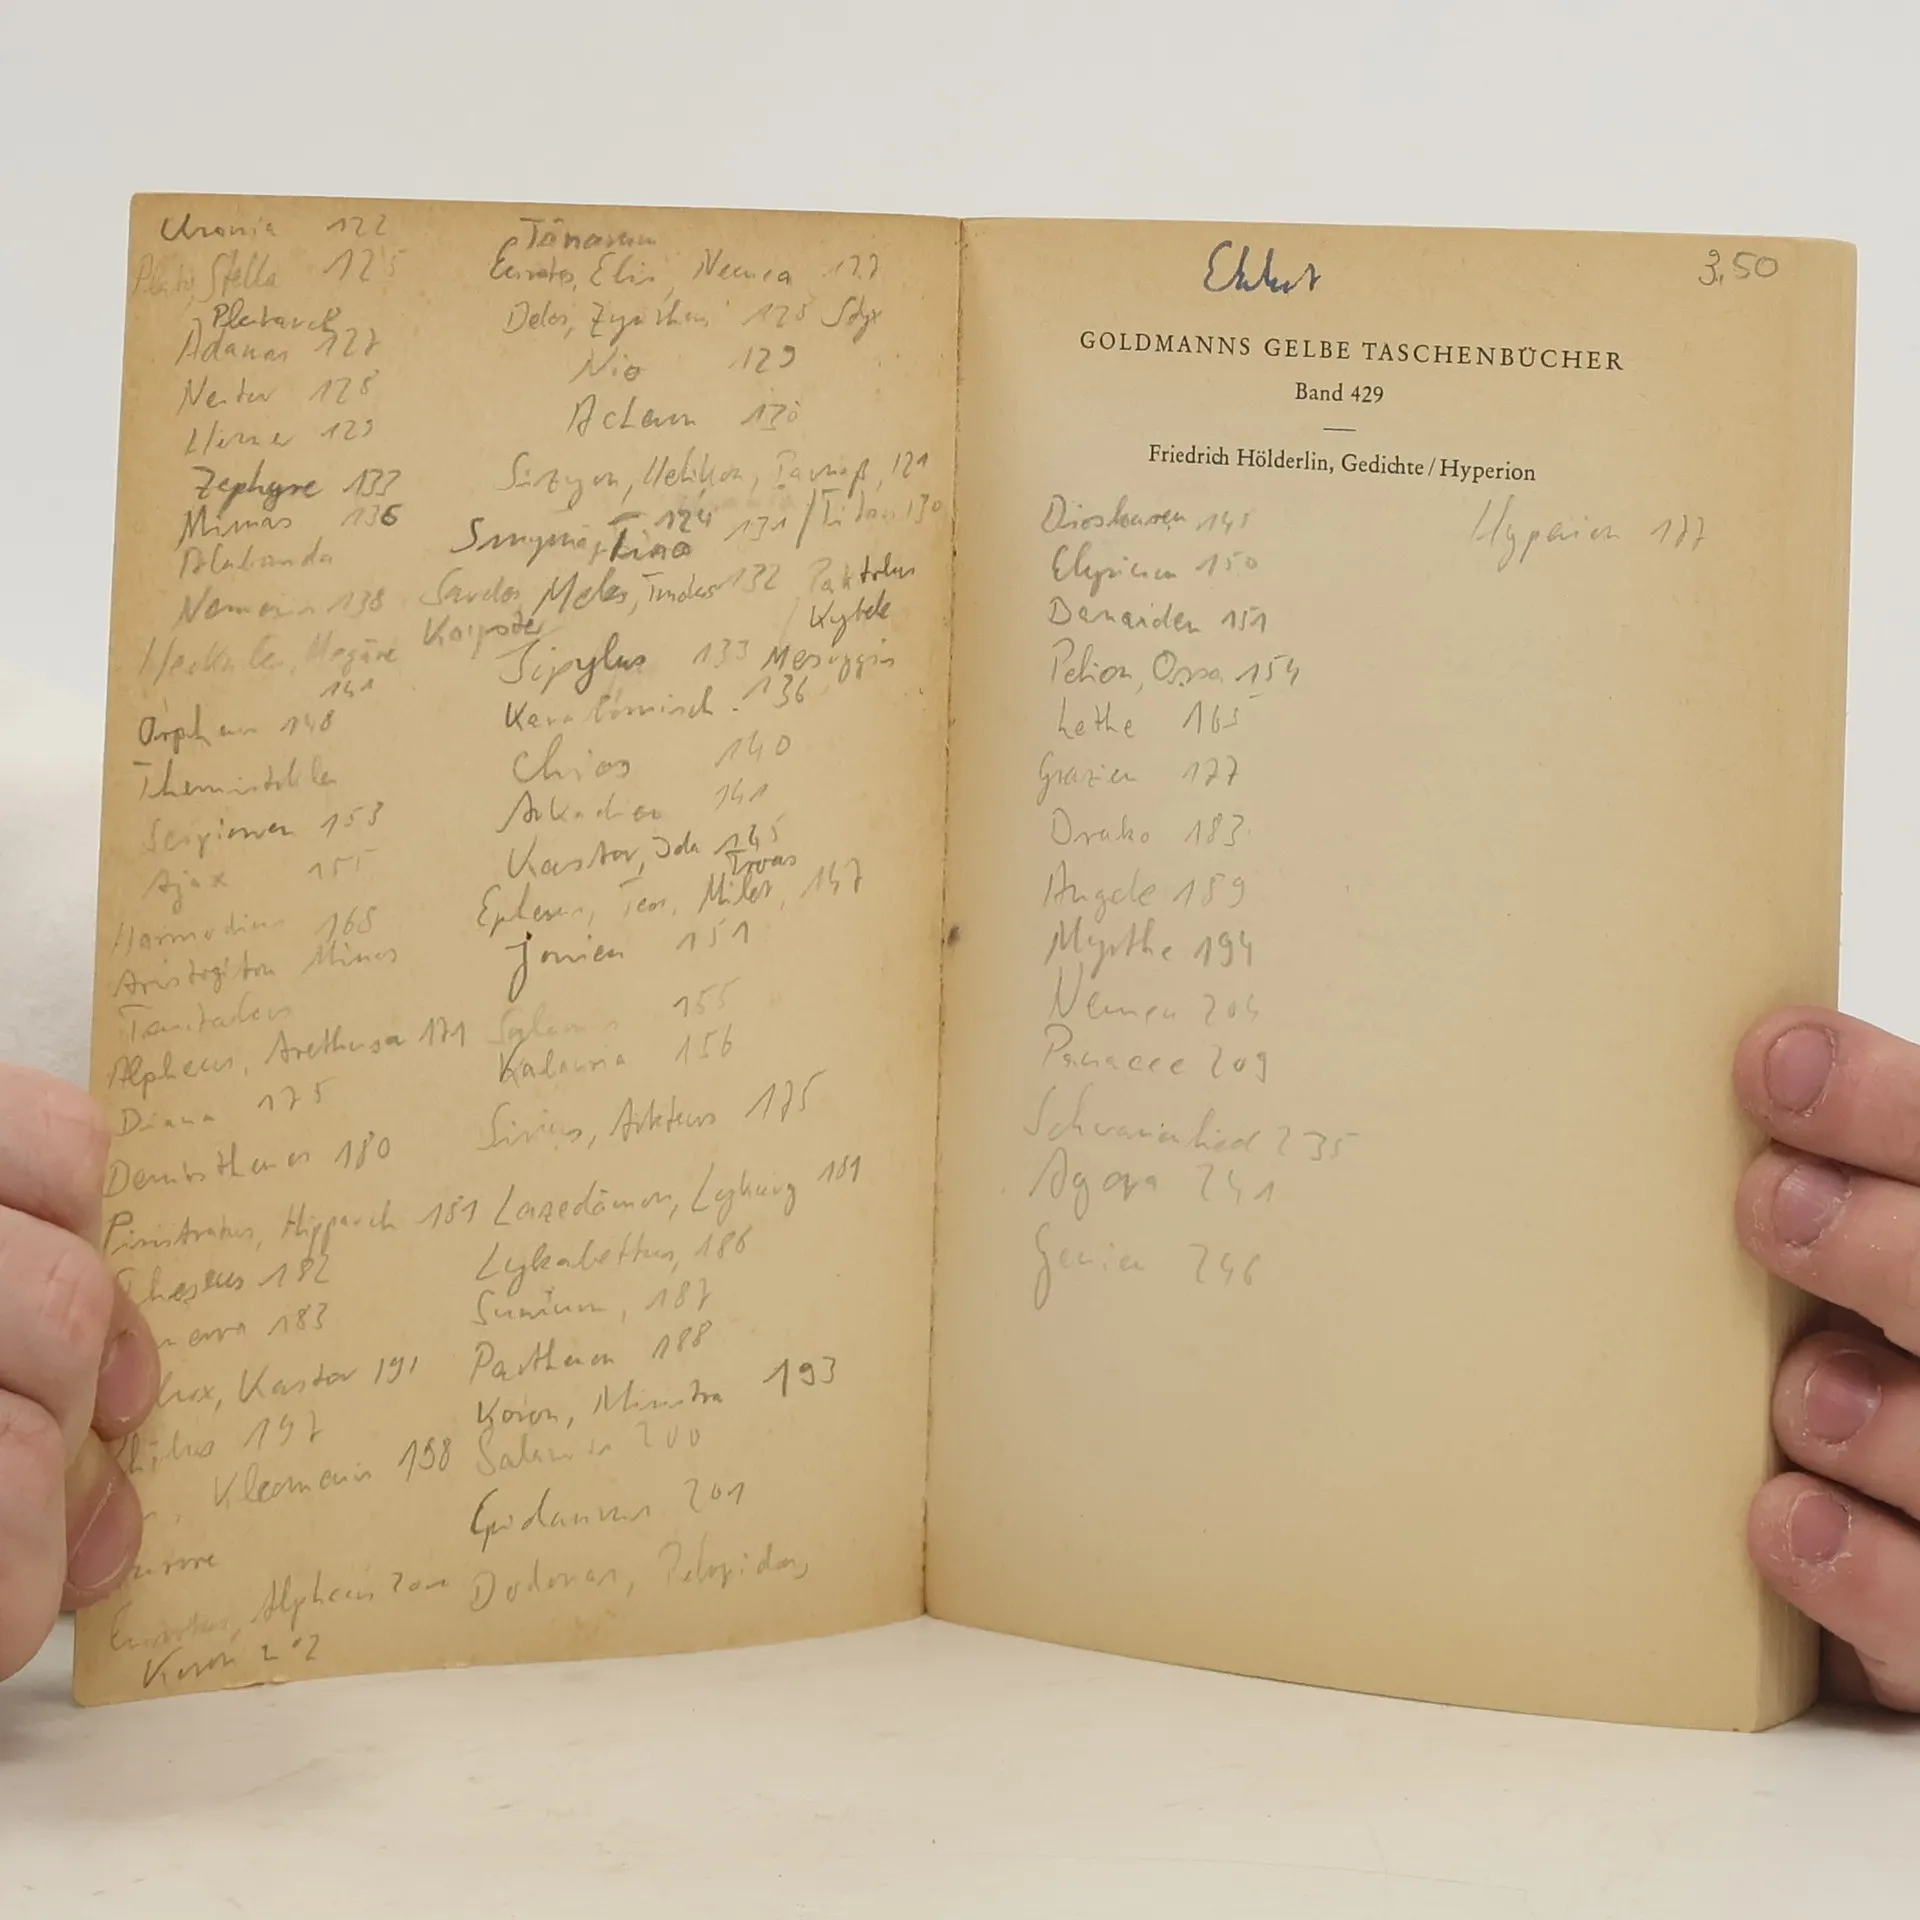 Urania 122
Plato, Stella 125
Plutarch
Adamas 127
Nestor 128
Homer 129
Zephyre 133
Mimas 136
Alabanda
Nemesis 138
Herkules, Megäre
141
Orpheus 148
Themistokles
Scipionen 153
Ajax 155
Harmodius 168
Aristogiton Minos
Alpheus, Arethusa 171
Diana 175
Demosthenes 180
Pisistratus, Hipparch 181
Theseus 182
183
Kastor 191
197
Kleomenis 198
Eurotas, Alpheus 200
Koron 202
Tänarum
Eurotas, Elis, Nemea 127
Delos, Zynthus 128 Styx
Nio 129
Acheron 130
Sizyon, Helikon, Parnaß, 121
124 / Titan 130
Smyrna, Tina 131
Sardes, Meles, Tmolus 132 Paktolus
Kayster Kybele
Sipylus 133 Messoggis
Karatomisch. 136
Chios 140
Arkadien 141
Kastor, Ida 145
Troas
Ephesus, Teos, Milet, 147
Jonien 151
Salamis 155
Kalauria 156
Sirius, Arkturus 175
Lazedämon, Lykurg 181
Lykabettus, 186
Sunium, 187
Parthenon 188
Koron, Misistra 193
Salamis 200
Epidaurus 201
Dodonas, Pelopidas,
3,50
GOLDMANNS GELBE TASCHENBÜCHER
Band 429
Friedrich Hölderlin, Gedichte/Hyperion
Dioskuren 145
Hyperion 177
Elysium 150
Danaiden 151
Pelion, Ossa 154
Lethe 165
Grazien 177
Drako 183
Angele 189
Myrthe 194
Nemea 204
Panacee 209
Schwanenlied 235
Agora 241
Genien 246